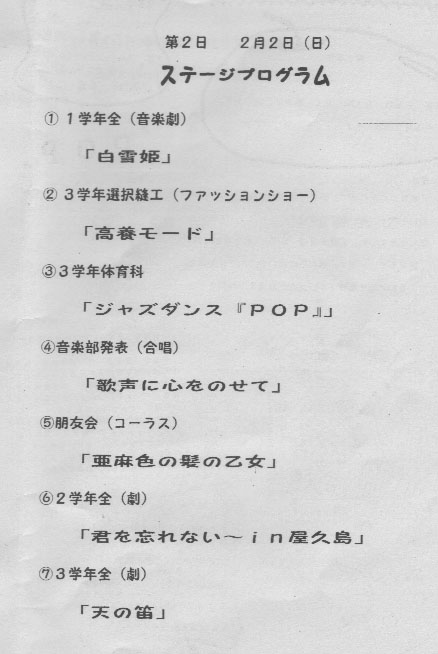 第2日　2月2日（日）
ステージプログラム
① 1学年全（音楽劇）
「白雪姫」
② 3学年選択縫工（ファッションショー）
「高養モード」
③3学年体育科
「ジャズダンス『POP』」
④音楽部発表（合唱）
「歌声に心をのせて」
⑤朋友会（コーラス）
「亜麻色の髪の乙女」
⑥2学年全（劇）
「君を忘れない～in屋久島」
⑦3学年全（劇）
「天の笛」